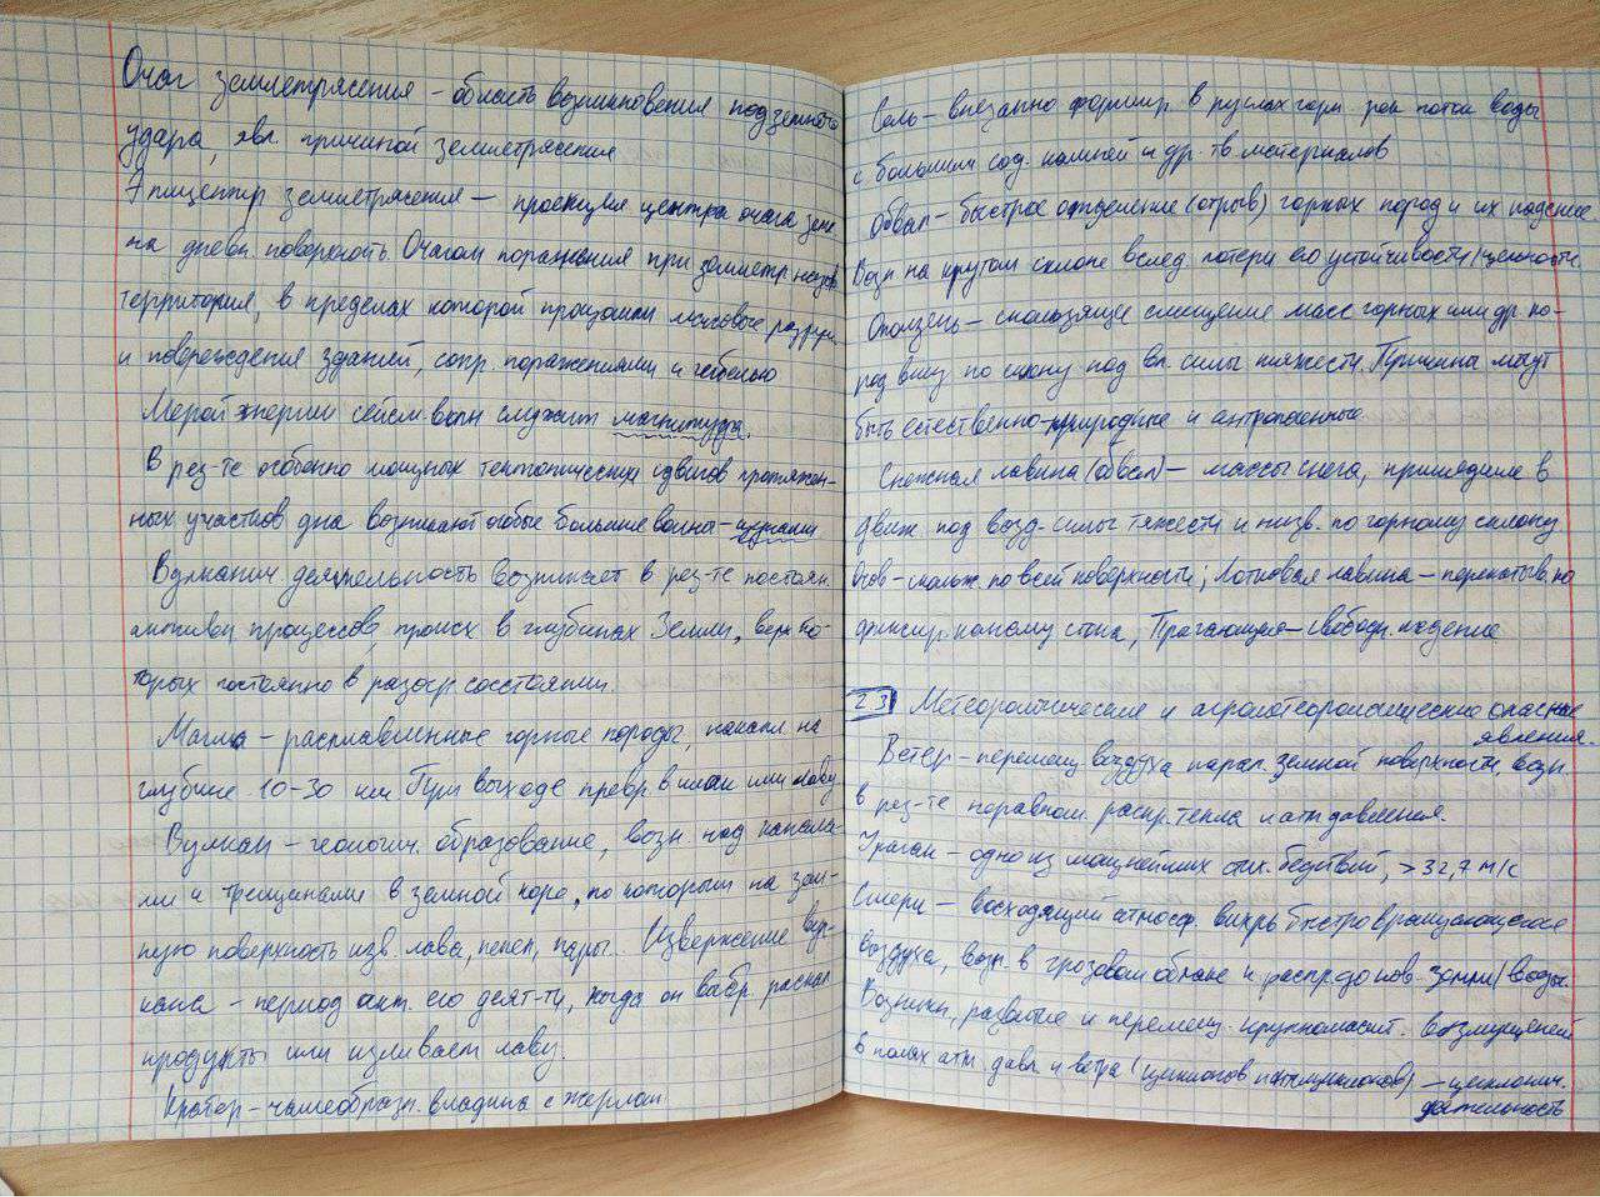 Очаг землетрясения – область возникновения подземного
удара, явл. причиной землетрясения
Эпицентр землетрясения – проекция центра очага земл
на дневн. поверхность. Очагом поражения при землетр. назыв.
территория, в пределах которой произошли массовые разруш.
и повреждения зданий, сопр. поражениями и гибелью
Мерой энергии сейсм. волн служит магнитуда.
В рез-те особенно мощных тектонических сдвигов протяжен-
ных участков дна возникают особые большие волны – цунами
Вулканич деятельность возникает в рез-те постоян.
активн процессов, происх в глубинах Земли, верх ко-
торых постоянно в разогр состоянии.
Магма – расплавленные горные породы, накапл. на
глубине 10-30 км. При выходе превр. в или лаву.
Вулкан – геологич. образование, возн. над канала-
ми и трещинами в земной коре, по которым на зем-
ную поверхность изв. лава, пепел, пары.. Извержение вул-
кана – период акт. его деят-ти, когда он выбр. раскал.
продукты или изливает лаву.
Кратер – чашеобразн. впадина с жерлом
Сель – внезапно формир. в руслах горн. рек поток воды
с большим сод. камней и др. тв. материалов
Обвал – быстрое отделение (отрыв) горных пород и их падение
Возн на крутом склоне вслед. потери его устойчивости/
Оползень – скользящее смещение масс горных или др. по-
род вниз по склону под вл. силы тяжести. Причина могут
быть естественно-природные и антропогенные.
Снежная лавина (обвал) – массы снега, пришедшие в
движ под возд. силы тяжести и низв. по горному склону.
Осов – скольж. по всей поверхности; Лотковая лавина – перекатыв. по
фиксир. каналу стока, Прыгающая – свободн. падение
2.3 Метеорологические и агрометеорологические опасные
явления.
Ветер – перемещ воздуха парал. земной поверхности, возн.
в рез-те неравном. распр. тепла и атм давления.
Ураган – одно из мощнейших стих. бедствий, > 32,7 м/с
Смерч – восходящий атмосф. вихрь быстро вращающегося
воздуха, возн. в грозовом облаке и распр. до пов. земли/воды.
Возникн., развитие и перемещ. крупномасшт. возмущений
в полях атм. давл. и ветра (циклонов и антициклонов) – циклонич.
деятельность